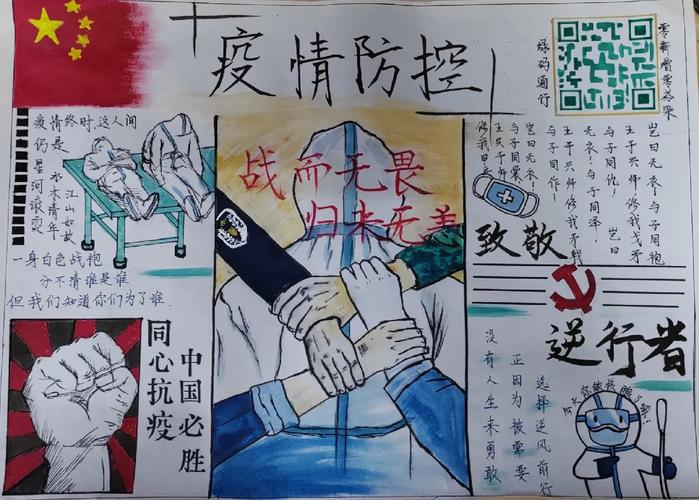 疫情防控
绿码通行
零新增零感染
疫情终时,这人间
仍是
星河滚烫
江山如故
一身白色战袍
分不清谁是谁
但我们知道你们为了谁.
同心抗疫
中国必胜
战而无畏
归来无恙
岂曰无衣!与子同袍
王于兴师!修我戈矛
与子同仇! 岂曰
无衣!与子同泽!
王于兴师修我矛戟
与子同作!
岂曰无衣!
与子同裳!
王于兴师
修我甲
致敬
逆行者
没有人生来勇敢
正因为被需要
选择逆风前行
今天你做核酸了吗?